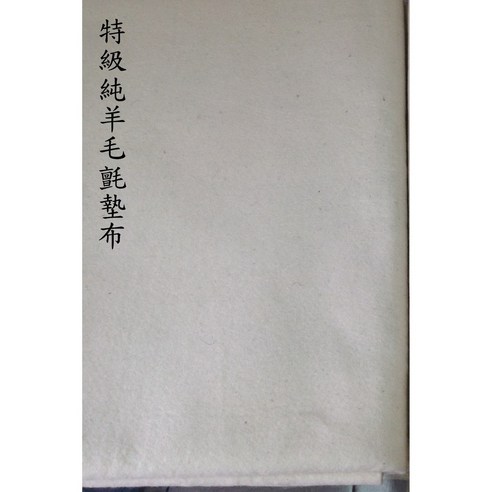 特級純羊毛氈墊布